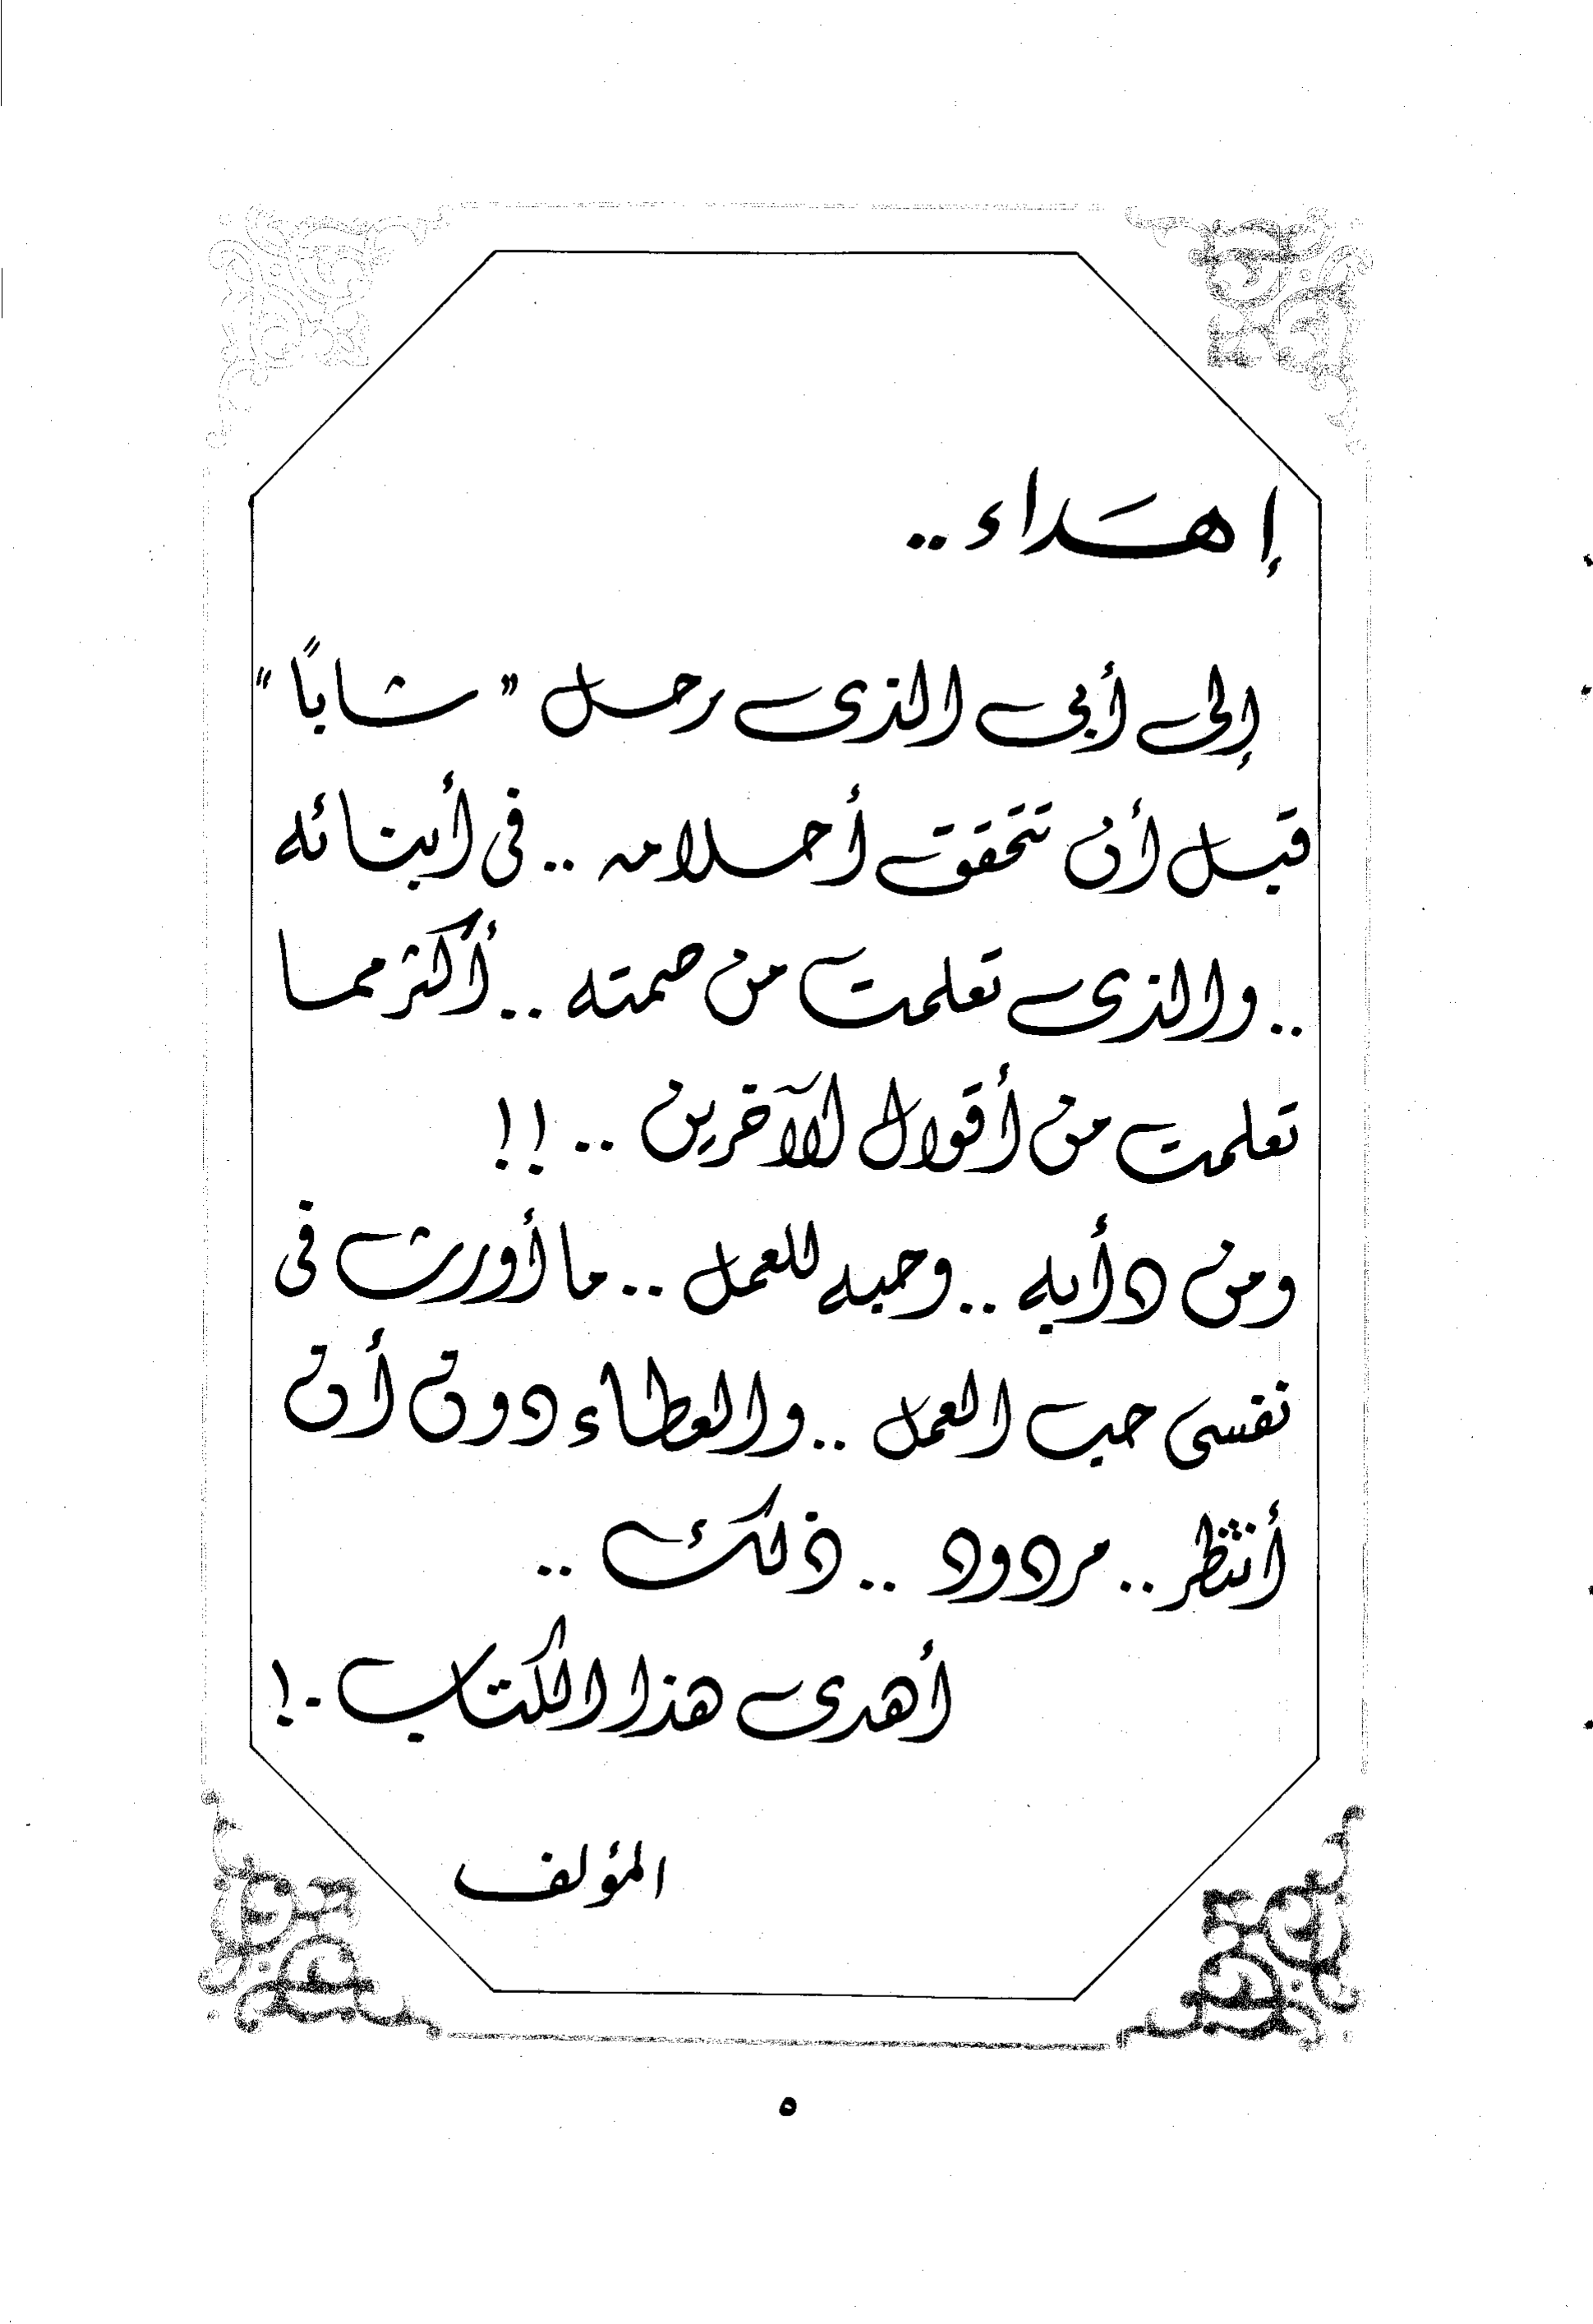 إهداء ..
إلى أبى الذى رحل "شابًا"
قبل أن تتحقق أحلامه .. فى أبنائه
.. والذى تعلمت من صمته .. أكثر مما
تعلمت من أقوال الآخرين .. !!
ومن دأبه .. وحبه للعمل .. ما أورث فى
نفسى حب العمل .. والعطاء دون أن
أنتظر .. مردود .. ذلك ..
أهدى هذا الكتاب .!
المؤلف
٥